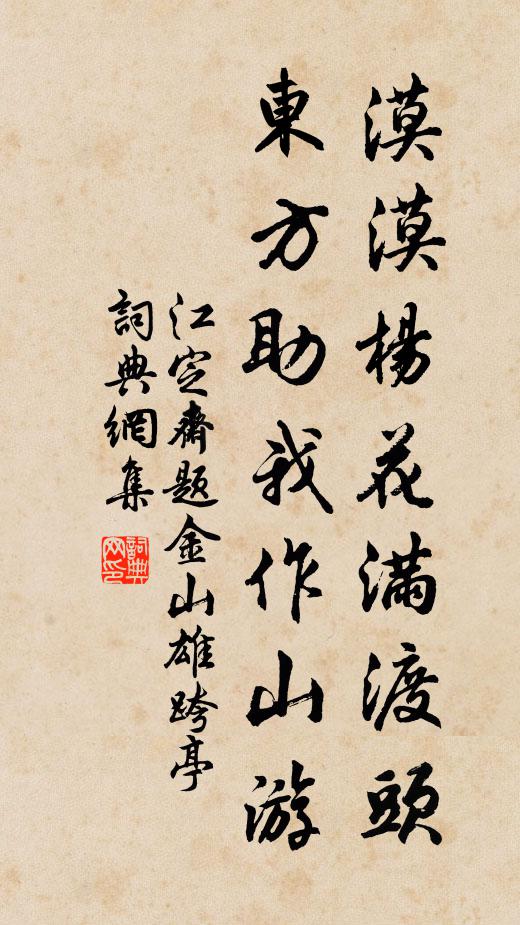 漠漠楊花滿渡頭
東方助我作山游
江定齋題金山雄跨亭
詞典網集
詞典网印